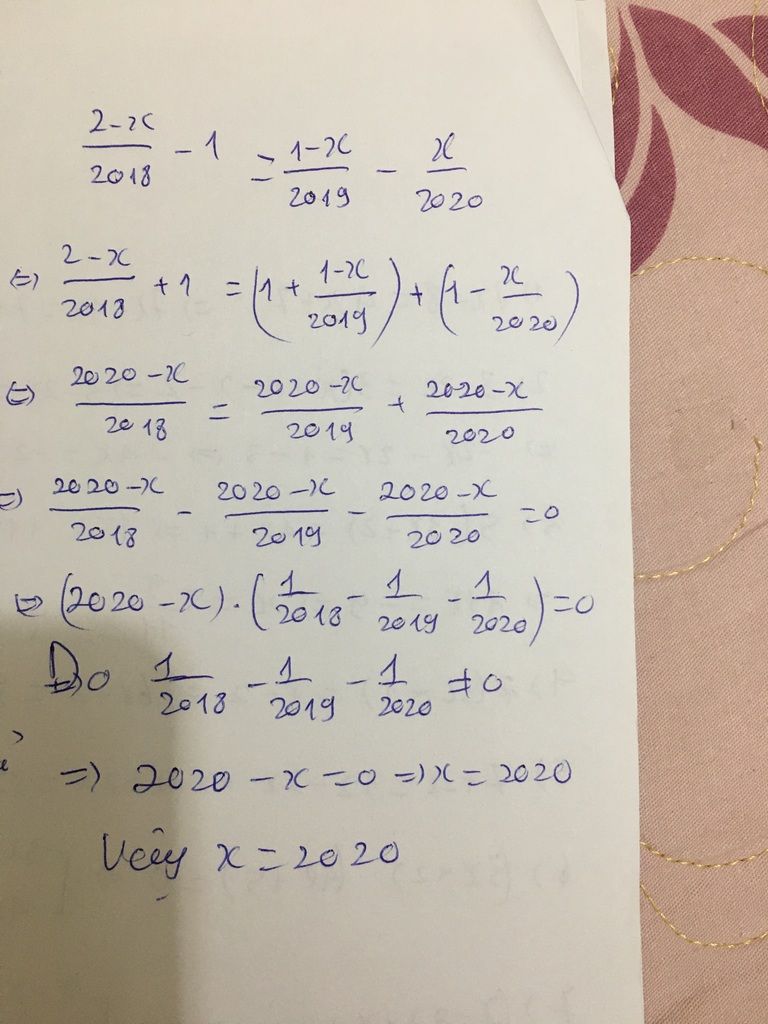 2-x/2018 - 1 = 1-x/2019 - x/2020
⇔ 2-x/2018 + 1 = (1 + 1-x/2019) + (1 - x/2020)
⇔ 2020-x/2018 = 2020-x/2019 + 2020-x/2020
⇔ 2020-x/2018 - 2020-x/2019 - 2020-x/2020 = 0
⇔ (2020-x).(1/2018 - 1/2019 - 1/2020) = 0
Do 1/2018 - 1/2019 - 1/2020 ≠ 0
⇒ 2020 - x = 0 ⇒ x = 2020
Vậy x = 2020